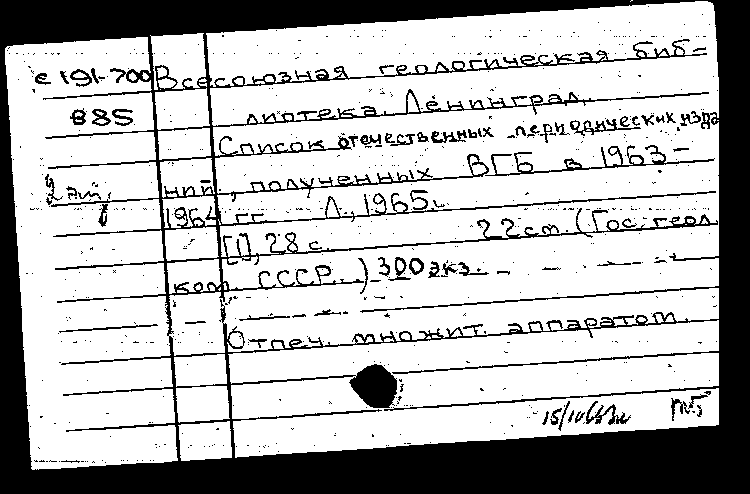 с 191-700 Всесоюзная геологическая биб-
885 лиотека. Ленинград.
Список отечественных периодических изда
2 экз. ний, полученных ВГБ в 1963-
1964 гг. Л., 1965.
[1], 28 с. 22 см. (Гос. геол.
ком. СССР.) 300 экз.
Отпеч. множит. аппаратом.